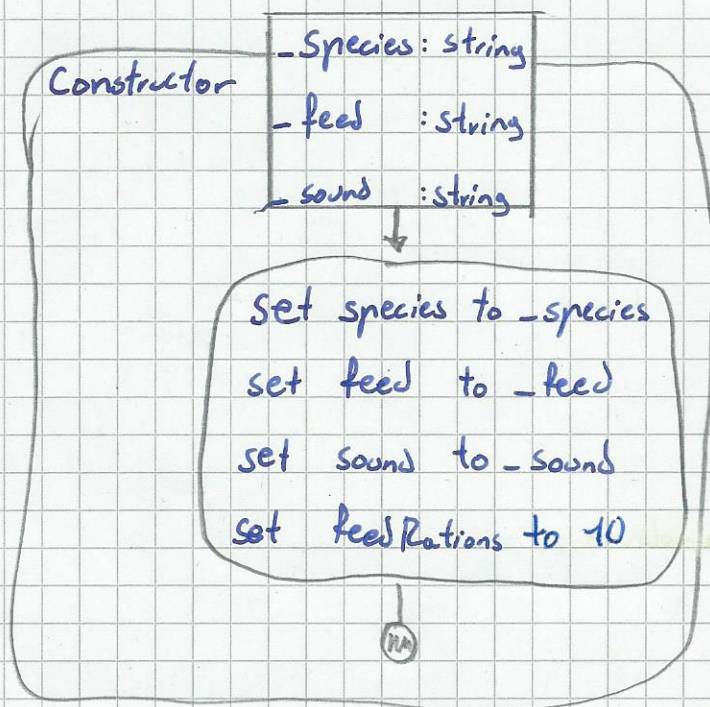 Constructor
_Species: string
_feed : string
_sound : string
set species to _species
set feed to _feed
set sound to _sound
set feedRations to 10